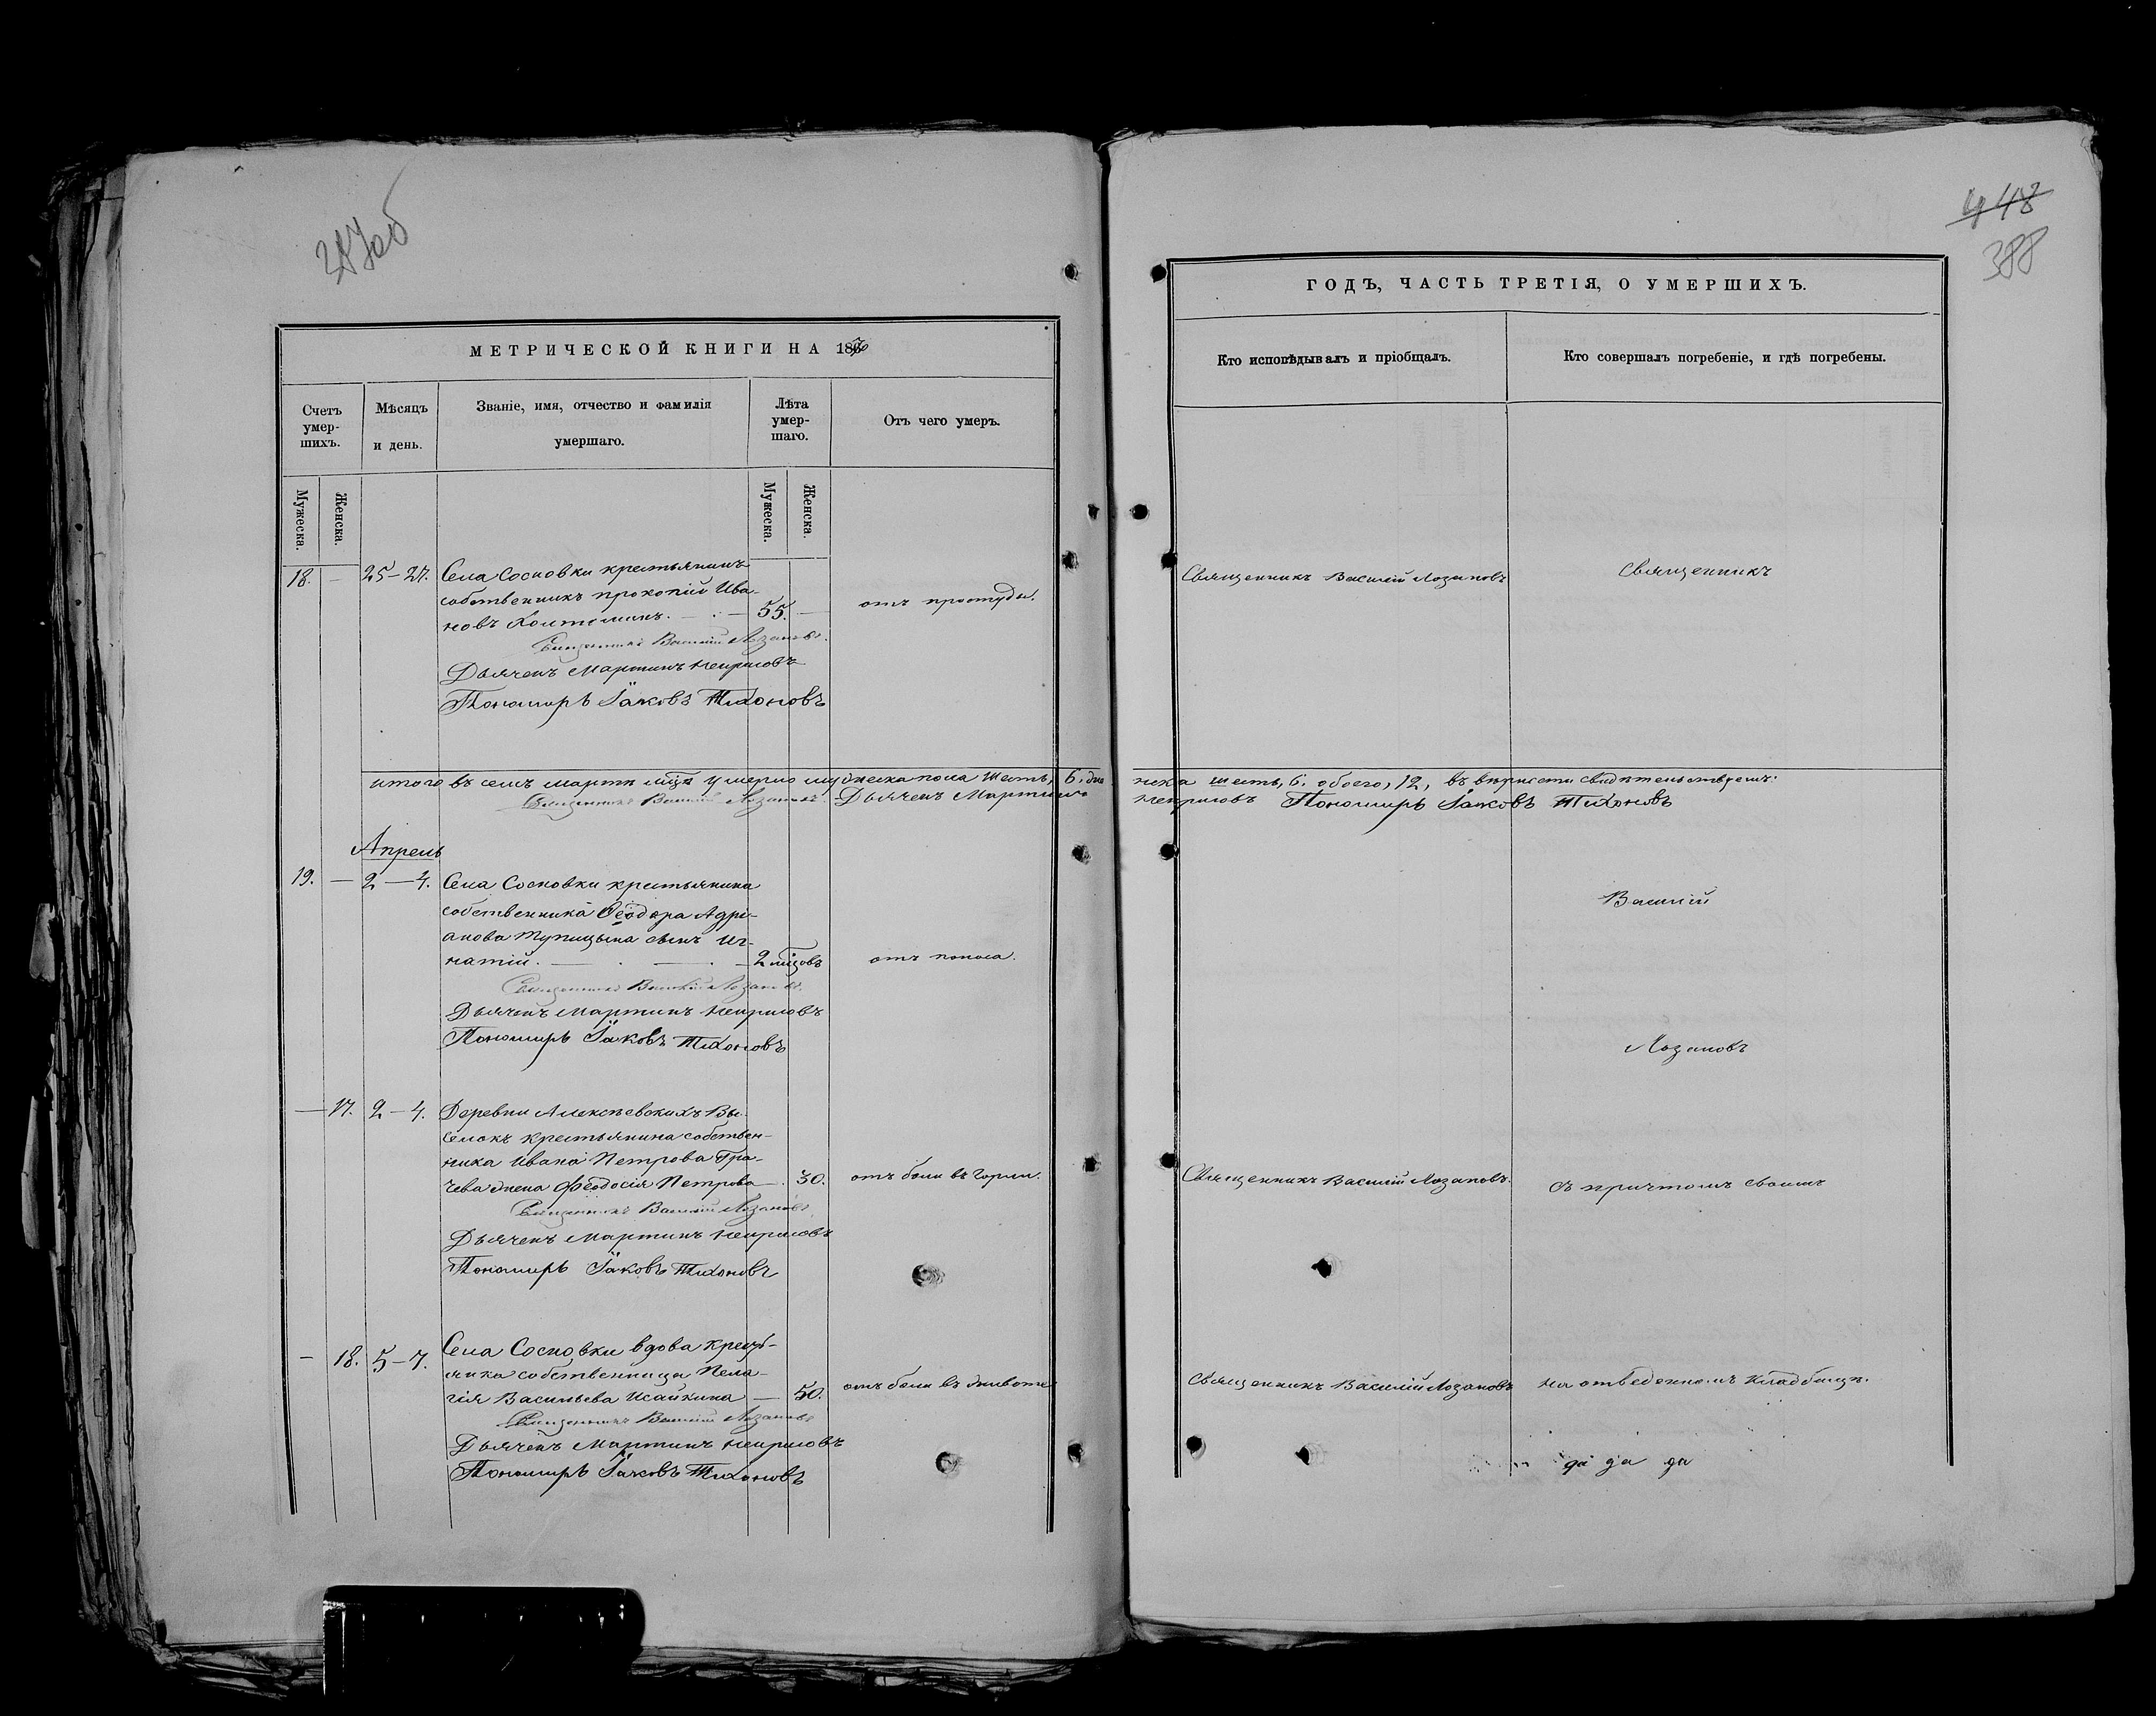 387об
448
388
МЕТРИЧЕСКОЙ КНИГИ НА 1870
ГОДЪ, ЧАСТЬ ТРЕТІЯ, О УМЕРШИХЪ.
Счетъ умер-шихъ.
Мѣсяцъ и день.
Званіе, имя, отчество и фамилія
умершаго.
Лѣта умер-шаго.
Отъ чего умеръ.
Кто исповѣдывалъ и пріобщалъ.
Кто совершалъ погребеніе, и гдѣ погребены.
Мужеска.
Женска.
Мужеска.
Женска.
18. — 25–27. Села Сосновки крестьянинъ
собственникъ Прокопій Ива-
новъ — 55. — отъ простуды.
Священникъ Василій Лозановъ
Священникъ
Священникъ Василій Лозановъ.
Дьячекъ Мартинъ
Пономарь Іаковъ Тихоновъ
итого въ семъ мартѣ мцѣ умерло мужеска пола шесть, 6. же
нска шесть, 6. обоего, 12, въ вѣрности свидѣтельствуемъ:
Священникъ Василій Лозановъ. Дьячекъ Мартинъ
Пономарь Іаковъ Тихоновъ
Апрель
19. — 2 — 4. Села Сосновки крестьянина
собственника Ѳеодора Адрі-
анова Тупицына сынъ Иг-
натій. — 2 мцовъ отъ поноса.
Василій
Священникъ Василій Лозановъ.
Дьячекъ Мартинъ
Пономарь Іаковъ Тихоновъ
Лозановъ
— 17. 2 — 4. Деревни Алексѣевскихъ Вы-
селокъ крестьянина собствен-
ника Ивана Петрова Гра-
чева жена Феодосія Петрова — 30. отъ боли въ горлѣ.
Священникъ Василій Лозановъ.
съ причтомъ своимъ
Священникъ Василій Лозановъ.
Дьячекъ Мартинъ
Пономарь Іаковъ Тихоновъ
— 18. 5–7. Села Сосновки вдова крестьь-
янка собственница Пела-
гія Васильева Исайкина — 50. отъ боли въ животѣ
Священникъ Василій Лозановъ
на отведенномъ кладбищѣ.
Священникъ Василій Лозановъ
Дьячекъ Мартинъ
Пономарь Іаковъ Тихоновъ
да да да